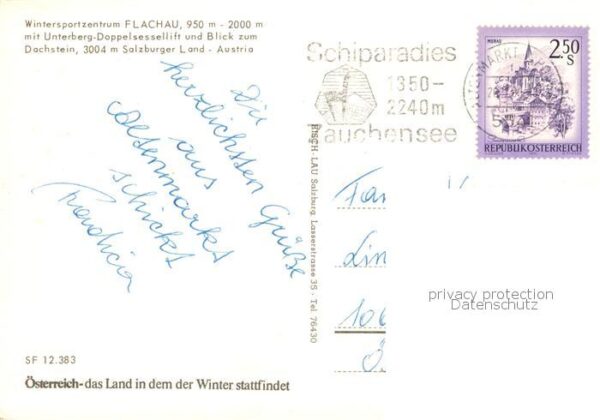 Wintersportzentrum FLACHAU, 950 m - 2000 m
mit Unterberg-Doppelsessellift und Blick zum
Dachstein, 3004 m Salzburger Land - Austria
Die
herzlichsten Grüße
aus
Altenmarkt
schickt
SF 12.383
Österreich-das Land in dem der Winter stattfindet
RISCH-LAU Salzburg, Lasserstrasse 35 · Tel. 76430
Schiparadies
1350-
2240m
Zauchensee
MURAU
2.50
S
REPUBLIK ÖSTERREICH
Fa
Lin
106
Ö
privacy protection
Datenschutz